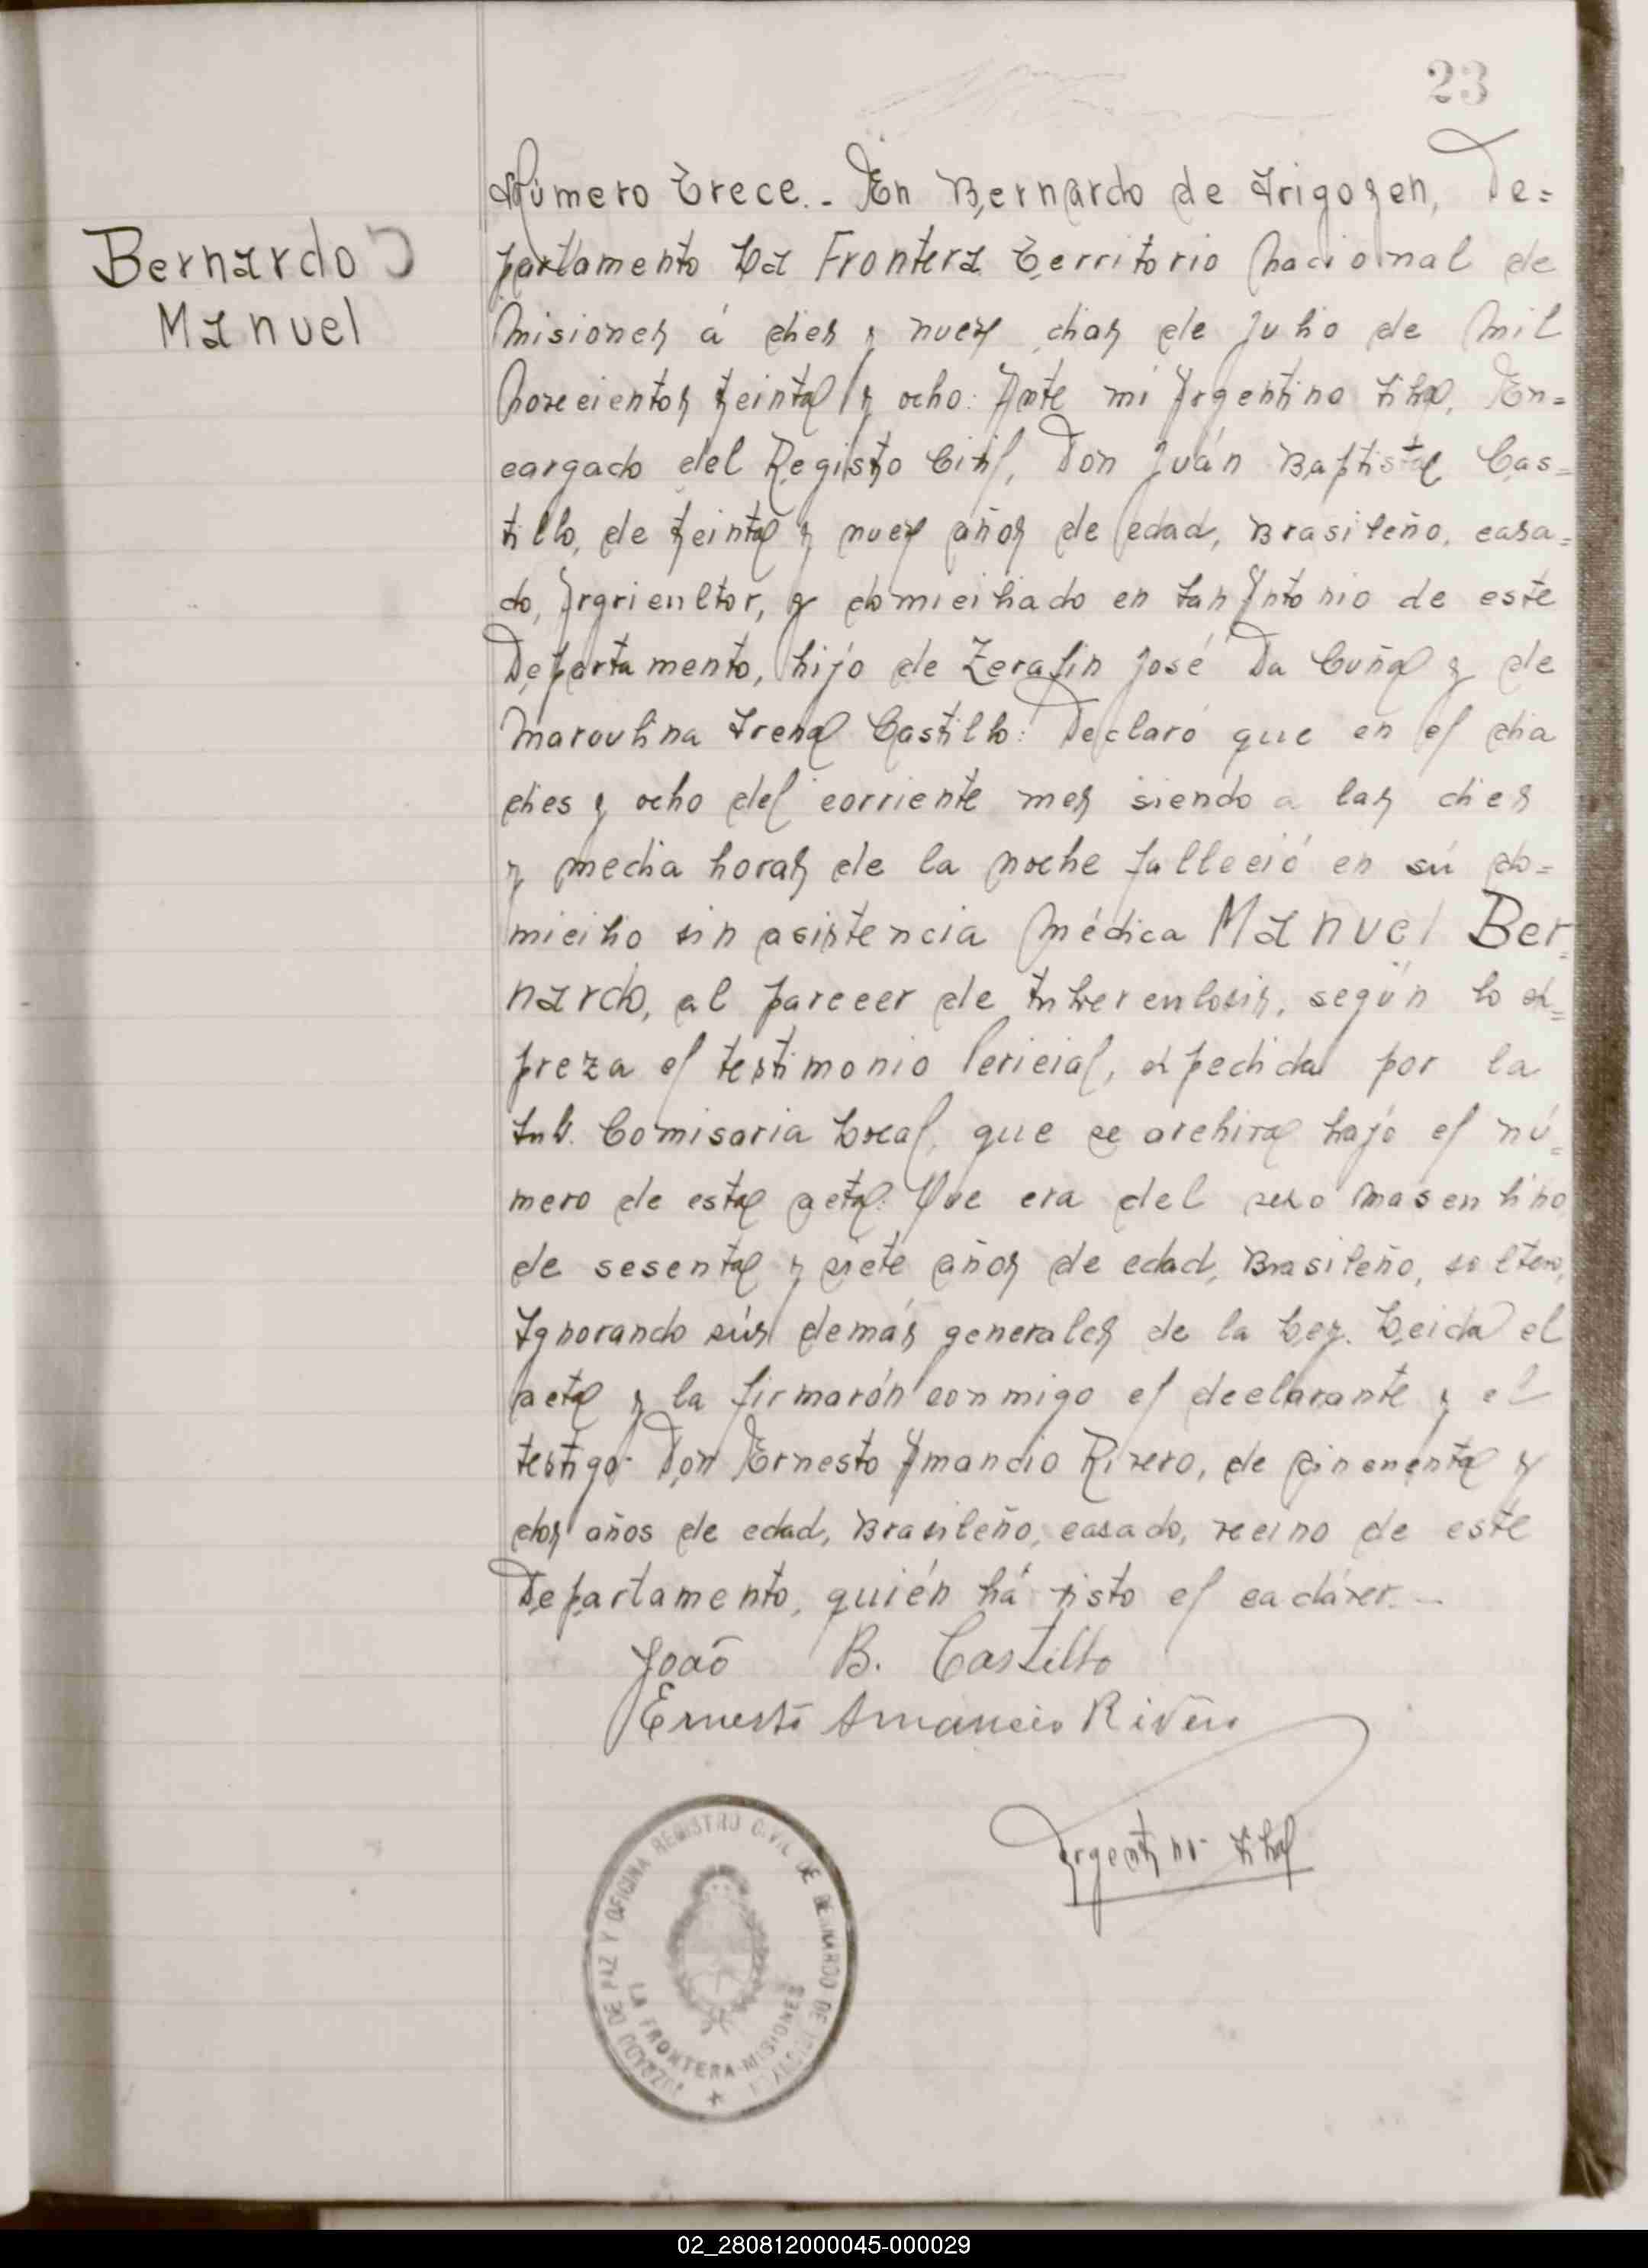 23
Bernardo
Manuel
Número Trece.- En Bernardo de Irigoyen, De=
partamento La Frontera Territorio Nacional de
Misiones á dies y nueve dias de Julio de Mil
Novecientos treinta y ocho: Ante mi Argentino Silva, En=
cargado del Registro Civil, Don Juán Baptista Cas=
tillo, de treinta y nueve años de edad, Brasileño, casa=
do, Argricultor, y domiciliado en San Antonio de este
Departamento, hijo de Zerafin José Da Cuña y de
Marculina Irena Castillo: Declaró que en el dia
dies y ocho del corriente mes siendo a las dies
y media horas de la noche falleció en sú do=
micilio sin asistencia Médica Manuel Ber=
nardo, al parecer de tuberculosis, según lo ex=
preza el testimonio Pericial, expedida por la
Sub. Comisaria Local, que se archiva bajo el nú=
mero de esta acta: Que era del sexo masculino,
de sesenta y siete años de edad, Brasileño, soltero,
Ignorando sús demás generales de la Ley. Leida el
acta y la firmarón conmigo el declarante y el
testigo Don Ernesto Amancio Rivero, de cincuenta y
dos años de edad, Brasileño, casado, vecino de este
Departamento, quién há visto el cadáver.-
Joaõ B. Castillo
Ernesto Amancio Rivero
Argentino Silva
JUZGADO DE PAZ Y OFICINA REGISTRO CIVIL DE BERNARDO DE IRIGOYEN
LA FRONTERA-MISIONES
02_280812000045-000029